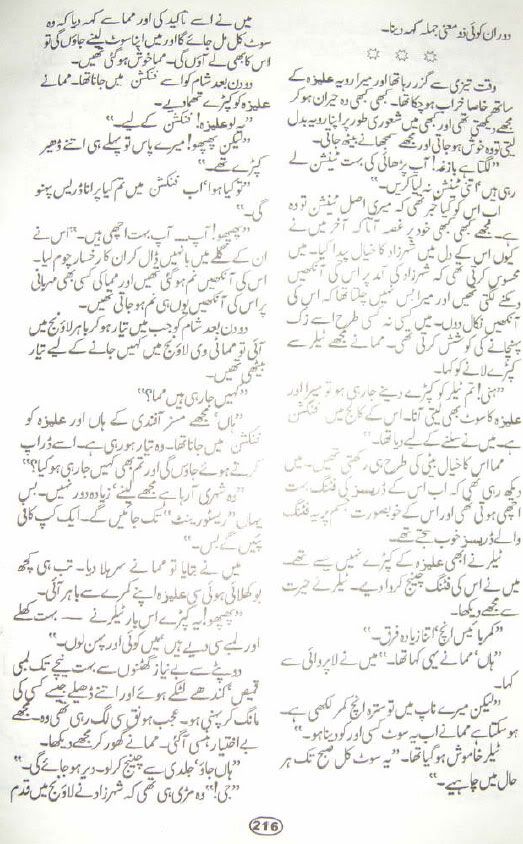 دوران کوئی ذو معنی جملہ کہہ دینا۔
وقت تیزی سے گزر رہا تھا اور میرا رویہ علیزہ کے
ساتھ خاصا خراب ہو چکا تھا۔ کبھی کبھی وہ حیران ہو کر
مجھے دیکھتی تھی اور کبھی میں شعوری طور پر اپنا رویہ بدل
لیتی تو وہ خوش ہو جاتی اور مجھے سمجھانے بیٹھ جاتی۔
”لگتا ہے بازغہ! آپ پڑھائی کی بہت ٹینشن لے
رہی ہیں‘ اتنی ٹینشن نہ لیا کریں۔“
اب اس کو کیا خبر تھی کہ میری اصل ٹینشن تو وہ
ہے۔ مجھے کبھی کبھی خود پر غصہ آتا کہ آخر میں نے
کیوں اس کے دل میں شہرزاد کا خیال پیدا کیا۔ میں
محسوس کرتی تھی کہ شہرزاد کی آمد پر اس کی آنکھیں
چمکنے لگتی تھیں اور میرا بس نہیں چلتا تھا کہ اس کی
آنکھیں نکال دوں۔ میں کسی نہ کسی طرح اسے زک
پہنچانے کی کوشش کرتی تھی۔ ممانے مجھے ٹیلر سے
کپڑے لانے کو کہا۔
”ہنی! تم ٹیلر کو کپڑے دینے جا رہی ہو تو میرا اور
علیزہ کا سوٹ بھی لیتی آنا۔ اس کے کالج میں فنکشن
ہے۔ میں نے سلنے کے لیے دیا تھا۔“
مما اس کا خیال بیٹی کی طرح ہی رکھتی تھیں۔ میں
دیکھ رہی تھی کہ اب اس کے ڈریسز کی فٹنگ بہت
اچھی ہوتی تھی اور اس کے خوبصورت جسم پر یہ فٹنگ
والے ڈریسز خوب جچتے تھے۔
ٹیلر نے ابھی علیزہ کے کپڑے نہیں سیے تھے۔
میں نے اس کی فٹنگ چینج کروا دیے۔ ٹیلر نے حیرت
سے مجھے دیکھا۔
”کمر بائیس انچ‘ اتنا زیادہ فرق۔“
”ہاں‘ ممانے یہی کہا تھا۔“ میں نے لاپروائی سے
کہا۔
”لیکن میرے ناپ میں تو سترہ انچ کمر لکھی ہے۔
ہو سکتا ہے ممانے اب یہ سوٹ کسی اور کو دینا ہو۔“
ٹیلر خاموش ہو گیا تھا۔ ”یہ سوٹ کل صبح تک ہر
حال میں چاہیے۔“
میں نے اسے تاکید کی اور مما سے کہہ دیا کہ وہ
سوٹ کل مل جائے گا اور میں اپنا سوٹ لینے جاؤں گی تو
اس کا بھی لے آؤں گی۔ مما خوش ہو گئی تھیں۔
دو دن بعد شام کو اسے فنکشن میں جانا تھا۔ ممانے
علیزہ کو کپڑے تھما دیے۔
”یہ لو علیزہ! فنکشن کے لیے۔“
”لیکن پھپھو! میرے پاس تو پہلے ہی اتنے ڈھیر
کپڑے تھے۔“
”تو کیا ہوا‘ اب فنکشن میں تم کیا پرانا ڈریس پہنو
گی۔“
”پھپھو! آپ.... آپ بہت اچھی ہیں۔“ اس نے
ان کے گلے میں بانہیں ڈال کر ان کا رخسار چوم لیا۔
اس کی آنکھیں نم ہو گئی تھیں اور مما کی کسی بھی مہربانی
پر اس کی آنکھیں یوں ہی نم ہو جاتی تھیں۔
دو دن بعد شام کو جب میں تیار ہو کر باہر لاؤنج میں
آئی تو مما ٹی وی لاؤنج میں کہیں جانے کے لیے تیار
بیٹھی تھیں۔
”کہیں جا رہی ہیں مما؟“
”ہاں‘ مجھے مسز آفندی کے ہاں اور علیزہ کو
فنکشن میں جانا تھا۔ وہ تیار ہو رہی ہے۔ اسے ڈراپ
کرتے ہوئے جاؤں گی اور تم بھی کہیں جا رہی ہو کیا؟“
”وہ شہری آ رہا ہے مجھے لینے‘ زیادہ دور نہیں۔ بس
یہاں ”ریسٹورینٹ“ تک جائیں گے۔ ایک کپ کافی
پئیں گے بس۔“
میں نے بتایا تو ممانے سر ہلا دیا۔ تب ہی کچھ
بوکھلائی ہوئی سی علیزہ اپنے کمرے سے باہر آئی۔
”پھپھو! یہ کپڑے اس بار ٹیلر نے ── بہت کھلے
اور لمبے سی دیے ہیں‘ میں کوئی اور پہن لوں۔“
دوپٹے سے بے نیاز گھٹنوں سے بہت نیچے تک لمبی
قمیص‘ کندھے لٹکے ہوئے اور اتنے ڈھیلے جیسے کسی کی
مانگ کر پہنی ہو۔ عجیب ہونق سی لگ رہی تھی وہ۔ مجھے
بے اختیار ہنسی آ گئی۔ ممانے گھور کر مجھے دیکھا۔
”ہاں جاؤ‘ جلدی سے چینج کر لو۔ دیر ہو جائے گی۔“
”جی!“ وہ مڑی ہی تھی کہ شہرزاد نے لاؤنج میں قدم
216